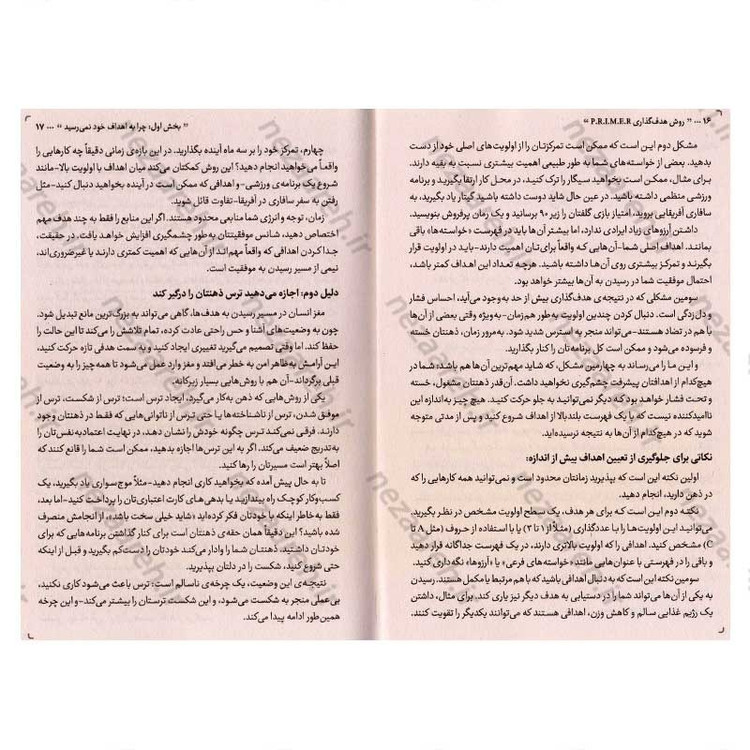 ۱۶ ... " روش هدف‌گذاری P.R.I.M.E.R "
مشکل دوم این است که ممکن است تمرکزتان را از اولویت‌های اصلی خود از دست
بدهید. بعضی از خواسته‌های شما به طور طبیعی اهمیت بیشتری نسبت به بقیه دارند.
برای مثال، ممکن است بخواهید سیگار را ترک کنید، در محل کار ارتقا بگیرید و برنامه
ورزشی منظمی داشته باشید. در عین حال شاید دوست داشته باشید گیتار یاد بگیرید، به
سافاری آفریقایی بروید، امتیاز بازی گلفتان را زیر ۹۰ برسانید و یک رمان پرفروش بنویسید.
داشتن آرزوهای زیاد ایرادی ندارد، اما بیشتر آن‌ها باید در فهرست «خواسته‌ها» باقی
بمانند. اهداف اصلی شما-آن‌هایی که واقعاً برای‌تان اهمیت دارند-باید در اولویت قرار
بگیرند و تمرکز بیشتری روی آن‌ها داشته باشید. هرچه تعداد این اهداف کمتر باشد،
احتمال موفقیت شما در رسیدن به آن‌ها بیشتر خواهد بود.
سومین مشکلی که در نتیجه‌ی هدف‌گذاری بیش از حد به وجود می‌آید، احساس فشار
و دل‌زدگی است. دنبال کردن چندین اولویت به طور هم‌زمان-به‌ویژه وقتی بعضی از آن‌ها
با هم در تضاد هستند-می‌تواند منجر به استرس شدید شود. به‌مرور زمان، ذهنتان خسته
و فرسوده می‌شود و ممکن است کل برنامه‌تان را کنار بگذارید.
و این ما را می‌رساند به چهارمین مشکل، که شاید مهم‌ترین آن‌ها هم باشد؛ شما در
هیچ‌کدام از اهدافتان پیشرفت چشم‌گیری نخواهید داشت. آن‌قدر ذهنتان مشغول، خسته
و تحت فشار خواهد بود که دیگر نمی‌توانید به جلو حرکت کنید. هیچ چیز به‌اندازه این
ناامیدکننده نیست که با یک فهرست بلندبالا از اهداف شروع کنید و پس از مدتی متوجه
شوید که در هیچ‌کدام از آن‌ها به نتیجه نرسیده‌اید.
نکاتی برای جلوگیری از تعیین اهداف بیش از اندازه:
اولین نکته این است که بپذیرید زمانتان محدود است و نمی‌توانید همه کارهایی را که
در ذهن دارید، انجام دهید.
نکته دوم این است که برای هر هدف، یک سطح اولویت مشخص در نظر بگیرید.
می‌توانید این اولویت‌ها را با عددگذاری (مثلاً از ۱ تا ۳) یا با استفاده از حروف (مثل A تا
C) مشخص کنید. اهدافی که اولویت بالاتری دارند، در یک فهرست جداگانه قرار دهید
و باقی را در فهرستی با عنوان‌هایی مانند «خواسته‌های فرعی» یا «آرزوها» نگه دارید.
سومین نکته این است که به دنبال اهدافی باشید که با هم مرتبط یا مکمل هستند. رسیدن
به یکی از آن‌ها می‌تواند شما را در دستیابی به هدف دیگر نیز یاری کند. برای مثال، داشتن
یک رژیم غذایی سالم و کاهش وزن، اهدافی هستند که می‌توانند یکدیگر را تقویت کنند.
" بخش اول: چرا به اهداف خود نمی‌رسید " ... ۱۷
چهارم، تمرکز خود را بر سه ماه آینده بگذارید. در این بازه‌ی زمانی دقیقاً چه کارهایی را
واقعاً می‌خواهید انجام دهید؟ این روش کمکتان می‌کند میان اهداف با اولویت بالا-مانند
شروع یک برنامه‌ی ورزشی-و اهدافی که ممکن است در آینده بخواهید دنبال کنید-مثل
رفتن به سفر سافاری در آفریقا-تفاوت قائل شوید.
زمان، توجه و انرژی شما منابعی محدود هستند. اگر این منابع را فقط به چند هدف مهم
اختصاص دهید، شانس موفقیتتان به‌طور چشمگیری افزایش خواهد یافت. در حقیقت،
جدا کردن اهدافی که واقعاً مهم‌اند از آن‌هایی که اهمیت کمتری دارند یا غیرضروری‌اند،
نیمی از مسیر رسیدن به موفقیت است.
دلیل دوم: اجازه می‌دهید ترس ذهنتان را درگیر کند
مغز انسان در مسیر رسیدن به هدف‌ها، گاهی می‌تواند به بزرگ‌ترین مانع تبدیل شود.
چون به وضعیت‌های آشنا و حس راحتی عادت کرده، تمام تلاشش را می‌کند تا این حالت را
حفظ کند. اما وقتی تصمیم می‌گیرید تغییری ایجاد کنید و به سمت هدفی تازه حرکت کنید،
این آرامش به‌ظاهر امن به خطر می‌افتد و مغز وارد عمل می‌شود تا همه چیز را به وضعیت
قبلی برگرداند-آن هم با روش‌هایی بسیار زیرکانه.
یکی از روش‌هایی که ذهن به‌کار می‌گیرد، ایجاد ترس است؛ ترس از شکست، ترس از
موفق شدن، ترس از ناشناخته‌ها یا حتی ترس از ناتوانی‌هایی که فقط در ذهنتان وجود
دارند. فرقی نمی‌کند ترس چگونه خودش را نشان دهد، در نهایت اعتمادبه‌نفس‌تان را
به‌تدریج ضعیف می‌کند. اگر به این ترس‌ها اجازه بدهید، ممکن است شما را قانع کنند که
اصلاً بهتر است مسیرتان را رها کنید.
تا به حال پیش آمده که بخواهید کاری انجام دهید-مثلاً موج‌سواری یاد بگیرید، یک
کسب‌وکار کوچک راه بیندازید یا بدهی‌های کارت اعتباری‌تان را پرداخت کنید-اما بعد،
فقط به خاطر اینکه با خودتان فکر کرده‌اید «شاید خیلی سخت باشد»، از انجامش منصرف
شده باشید؟ این دقیقاً همان حقه‌ی ذهنتان است برای کنار گذاشتن برنامه‌هایی که برای
خودتان داشتید. ذهنتان، شما را وادار می‌کند خودتان را دست‌کم بگیرید و قبل از اینکه
حتی شروع کنید، شکست را در دلتان بپذیرید.
نتیجه‌ی این وضعیت، یک چرخه‌ی ناسالم است: ترس باعث می‌شود کاری نکنید،
بی‌عملی منجر به شکست می‌شود، و این شکست ترستان را بیشتر می‌کند-و این چرخه
همین‌طور ادامه پیدا می‌کند.